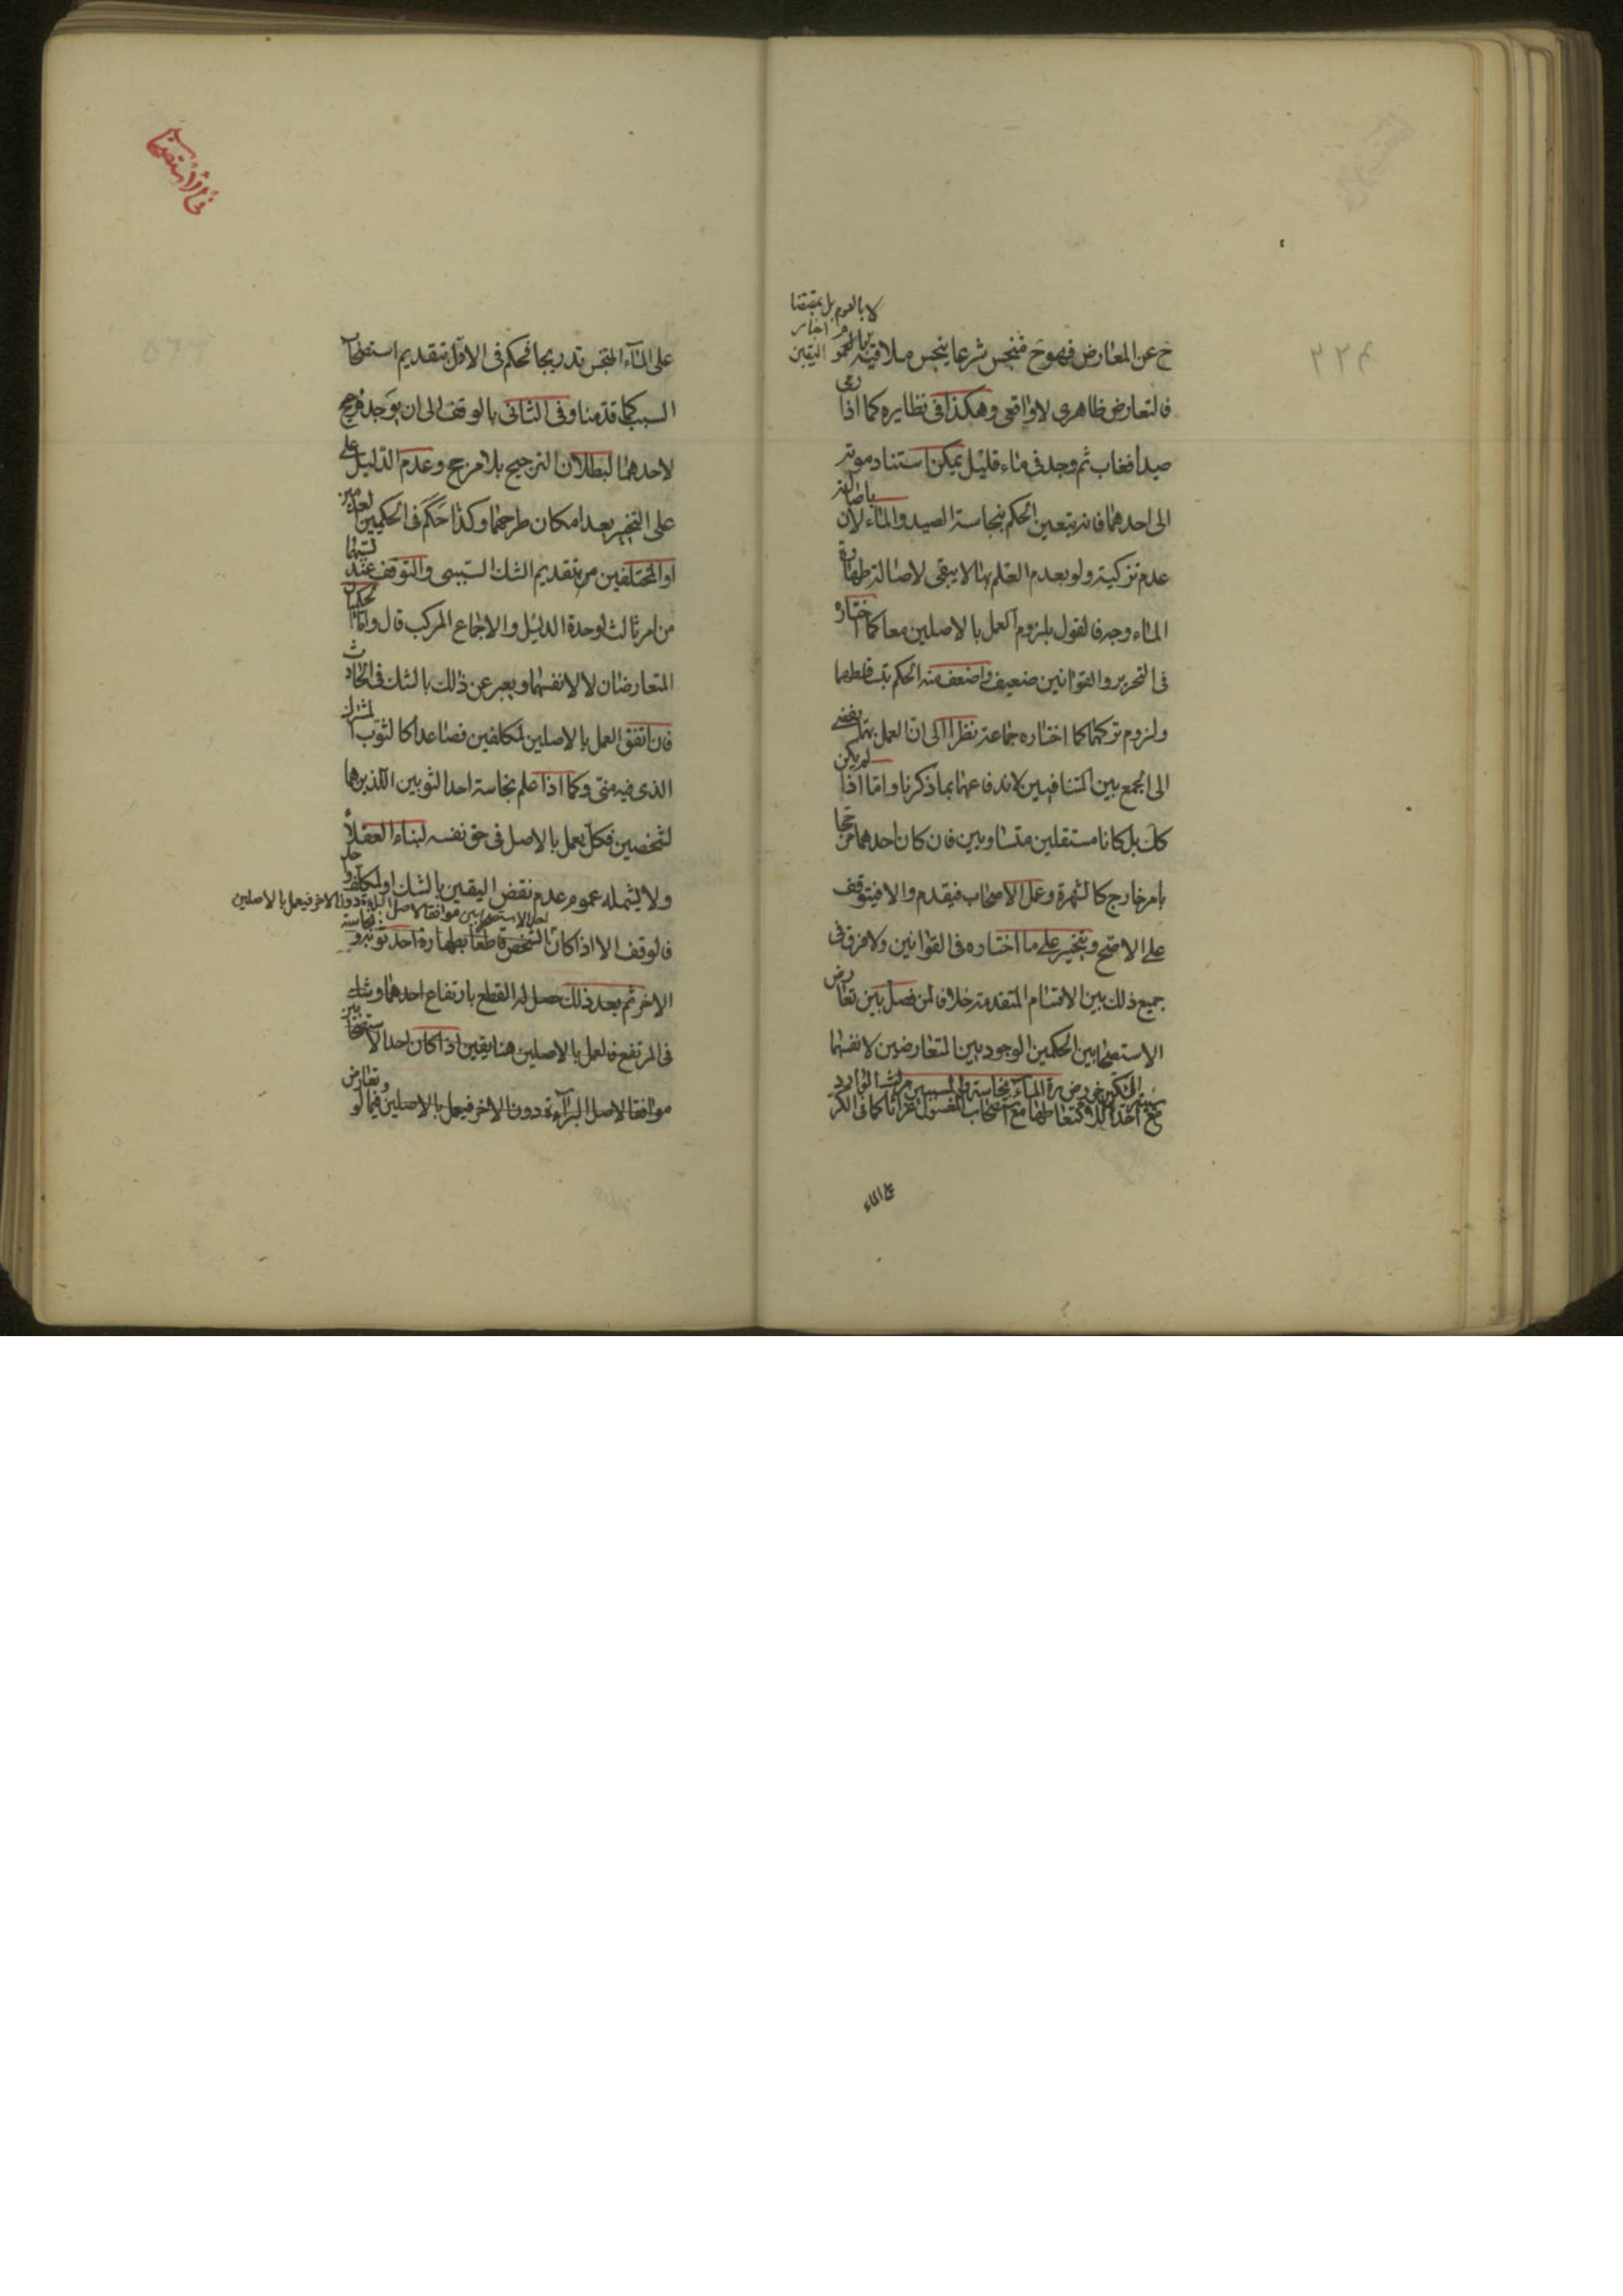 ٢٢۴
لا بالعموم بل بمقتضا
ح عن المعارض فهو ح منجس شرعا ينجس ملاقيه
اليقين
فالتعارض ظاهرى لا واقعى وهكذا فى نظايره كما اذا رمى
صيدا فغاب ثم وجد فى ماء قليل يمكن استناد موته
الى احدهما فانه يتعين الحكم بنجاسة الصيد والماء لان باصالة
عدم تزكيته ولو بعدم العلم بها لا يبقى لاصالة طهارة
الماء وجه فالقول بلزوم العمل بالاصلين معا كما اختاره
فى التحرير والقوانين ضعيف واضعف منه الحكم بتساقطهما
ولزوم تركهما كما اختاره جماعة نظرا الى ان العمل بهما يفضى
الى الجمع بين المتنافيين لاندفاعها بما ذكرنا واما اذا لم يكن
كك بل كانا مستقلين متساويين فان كان احدهما مرجحا
بامر خارج كالشهرة وعمل الاصحاب فيقدم والا فيتوقف
على الاصح ويتخير على ما اختاره فى القوانين ولا فرق فى
جميع ذلك بين الاقسام المتقدمة خلافا لمن فصل بين تعارض
الاستصحابين الحكمين الوجوديين المتعارضين لانفسهما
على الماء
فى الاستصحاب
على الماء المتنجس تدريجا فحكم فى الاول بتقديم استصحاب
السبب كما قدمنا وفى الثانى بالوقف الى ان يوجد مرجح
لاحدهما لبطلان الترجيح بلا مرجح وعدم الدليل على
على التخيير بعد امكان طرحهما وكذا حكم فى الحكميين العدميين
او المختلفين من تقديم الشك السببى والتوقف عند
من امر ثالث لوحدة الدليل والاجماع المركب قال واما الحكميان
المتعارضان لا لانفسهما ويعبر عن ذلك بالشك فى الحادث
فان اتفق العمل بالاصلين لمكلفين فصاعدا كالثوب المشترك
الذى فيه منى وكما اذا علم نجاسة احد الثوبين اللذين هما
لشخصين فكل يعمل بالاصل فى حق نفسه لبناء العقلاء
ولا يشمله عموم عدم نقض اليقين بالشك او لمكلف واحد
احد الاستصحابين موافقا لاصل البرائة دون الاخر فيعمل بالاصلين
فالوقف الا اذا كان الشخص قاطعا بطهارة احد ثوبيه ونجاسة
الاخر ثم بعد ذلك حصل له القطع بارتفاع احدهما وشك
فى المرتفع فالعمل بالاصلين هنا يقين اذا كان احد الاستصحابين
موافقا لاصل البرآءة دون الاخر فيعمل بالاصلين فيما لو تعارض